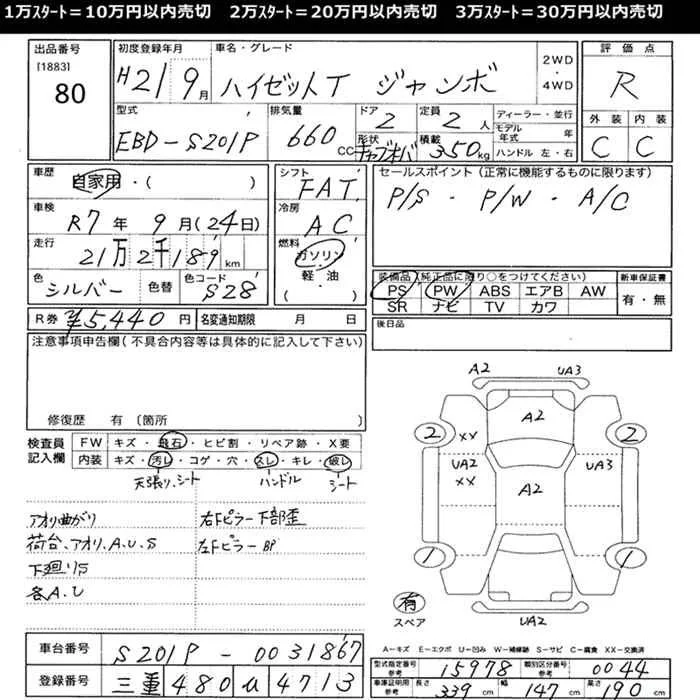 1万ｽﾀｰﾄ＝10万円以内売切　2万ｽﾀｰﾄ＝20万円以内売切　3万ｽﾀｰﾄ＝30万円以内売切
出品番号
[1883]
80
初度登録年月
H21 9月
車名・グレード
ハイゼットT ジャンボ
2WD
・
4WD
評価点
R
外装 内装
C C
型式
EBD-S201P
排気量
660 CC
ドア
2
形状
キャブオーバ
定員
2人
積載
350kg
ディーラー・並行
モデル年式 年
ハンドル 左・右
車歴
自家用・( )
車検
R7年 9月(24日)
走行
21万2千189km
色
シルバー
色替
色コード
S28
シフト
FAT
冷房
AC
燃料
ガソリン
・
軽・油
( )
セールスポイント(正常に機能するものに限ります)
P/S・P/W・A/C
装備品(純正品に限り○をつけてください)
PS PW ABS エアB AW
SR ナビ TV カワ
新車保証書
有・無
R券 ¥5,440円 名変通知期限 月 日
後日品
注意事項申告欄(不具合内容等は具体的に記入して下さい)
修復歴 有 〔箇所 〕
検査員記入欄
FW キズ・飛石・ヒビ割・リペア跡・X要
内装 キズ・汚レ・コゲ・穴・スレ・キレ・破レ
天張り、シート ハンドル シート
アオリ曲がり
荷台、アオリA.U.S
各A.U
右Fピラー下部歪
左Fピラー BP
A2 UA3
2 A2 2
XX
UA2 UA3
XX
A2
1 1
有
スペア
UA2
A=キズ E=エクボ U=凹み W=補修跡 S=サビ C=腐食 XX=交換済
車台番号 S201P-0031867
登録番号 三重 480 4713
型式指定番号 参考 15978 類別区分番号 参考 0044
車庫証明用 参考 長さ 339cm 幅 147cm 高さ 190cm